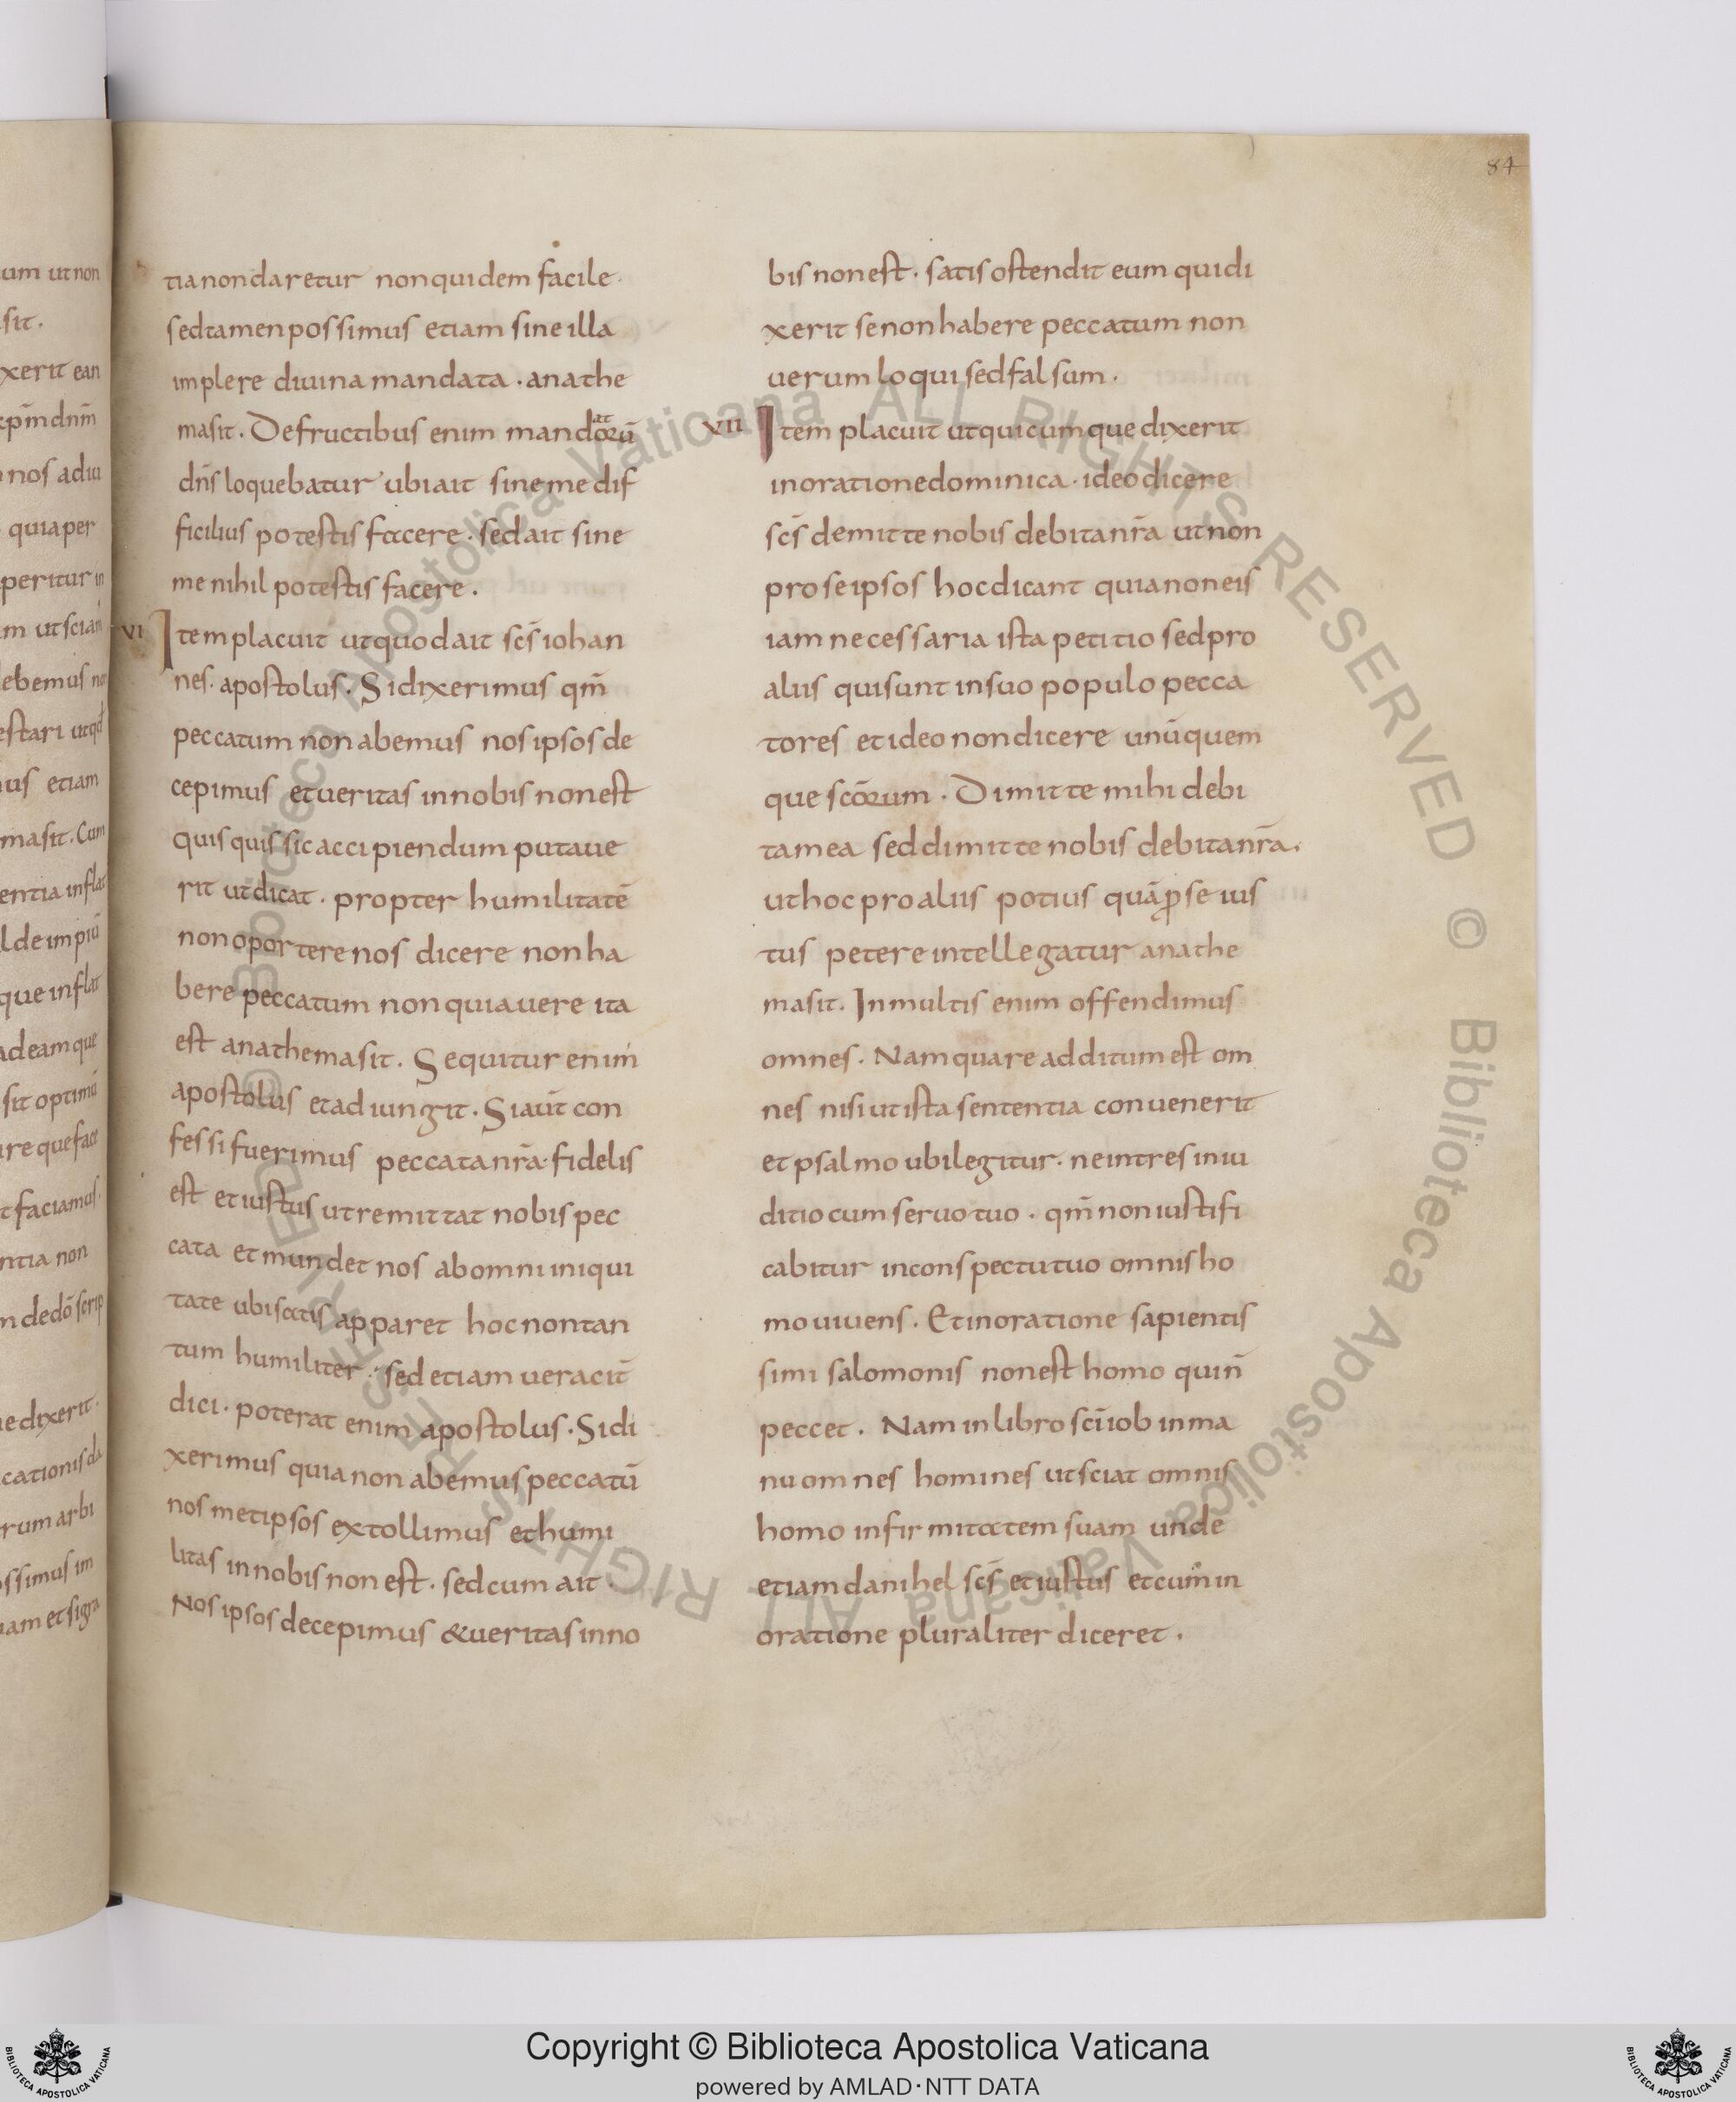 84
tia non daretur non quidem facile·
sed tamen possimus etiam sine illa
implere diuina mandata · anathe
masit. De fructibus enim mandatorū
dn̄s loquebatur ubi ait sine me dif
ficilius potestis facere · sed ait sine
me nihil potestis facere .
VI Item placuit ut quod ait scs̄ iohan
nes· apostolus· Si dixerimus qm̄
peccatum non abemus nos ipsos de
cepimus et ueritas in nobis non est
quisquis sic accipiendum putaue
rit ut dicat · propter humilitatē
non oportere nos dicere non ha
bere peccatum non quia uere ita
est anathemasit. Sequitur enim
apostolus et adiungit · Si aūt con
fessi fuerimus peccata nr̄a· fidelis
est et iustus ut remittat nobis pec
cata et mundet nos ab omni iniqui
tate ubi satis apparet hoc non tan
tum humiliter · sed etiam ueracit̄
dici · poterat enim apostolus · Si di
xerimus quia non abemus peccatū
nos metipsos extollimus et humi
litas in nobis non est · sed cum ait ·
Nos ipsos decepimus & ueritas in no
bis non est · satis ostendit eum qui di
xerit se non habere peccatum non
uerum loqui sed falsum ·
VII Item placuit ut quicumque dixerit
in oratione dominica · ideo dicere
scs̄ demitte nobis debita nr̄a ut non
pro se ipsos hoc dicant quia non eis
iam necessaria ista petitio sed pro
aliis qui sunt in suo populo pecca
tores et ideo non dicere unūquem
que scōrum · Dimitte mihi debi
ta mea sed dimitte nobis debita nr̄a·
ut hoc pro aliis potius quā ꝓ se ius
tus petere intellegatur anathe
masit. In multis enim offendimus
omnes · Nam quare additum est om
nes nisi ut ista sententia conuenerit
et psalmo ubi legitur · ne intres in iu
ditio cum seruo tuo · qm̄ non iustifi
cabitur in conspectu tuo omnis ho
mo uiuens · Et in oratione sapientis
simi salomonis non est homo qui n̄
peccet · Nam in libro scī iob in ma
nu omnes homines ut sciat omnis
homo infirmitatem suam unde
etiam danihel scs̄ et iustus et cum in
oratione pluraliter diceret ·
© Biblioteca Apostolica Vaticana ALL RIGHTS RESERVED
Copyright © Biblioteca Apostolica Vaticana
powered by AMLAD·NTT DATA
BIBLIOTECA APOSTOLICA VATICANA
BIBLIOTECA APOSTOLICA VATICANA